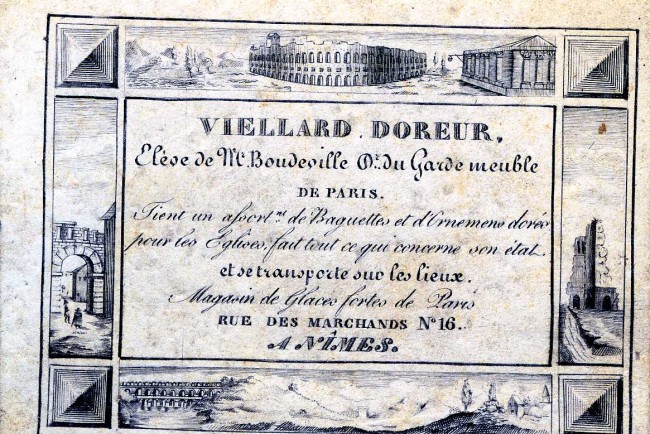 VIELLARD, DOREUR,
Elève de Mr. Boudeville Dr. du Garde meuble
DE PARIS.
Tient un assortnt. de Baguettes et d'Ornemens dorés
pour les Eglises, fait tout ce qui concerne son état
et se transporte sur les lieux.
Magasin de Glaces fortes de Paris
RUE DES MARCHANDS No 16.
A NÎMES.